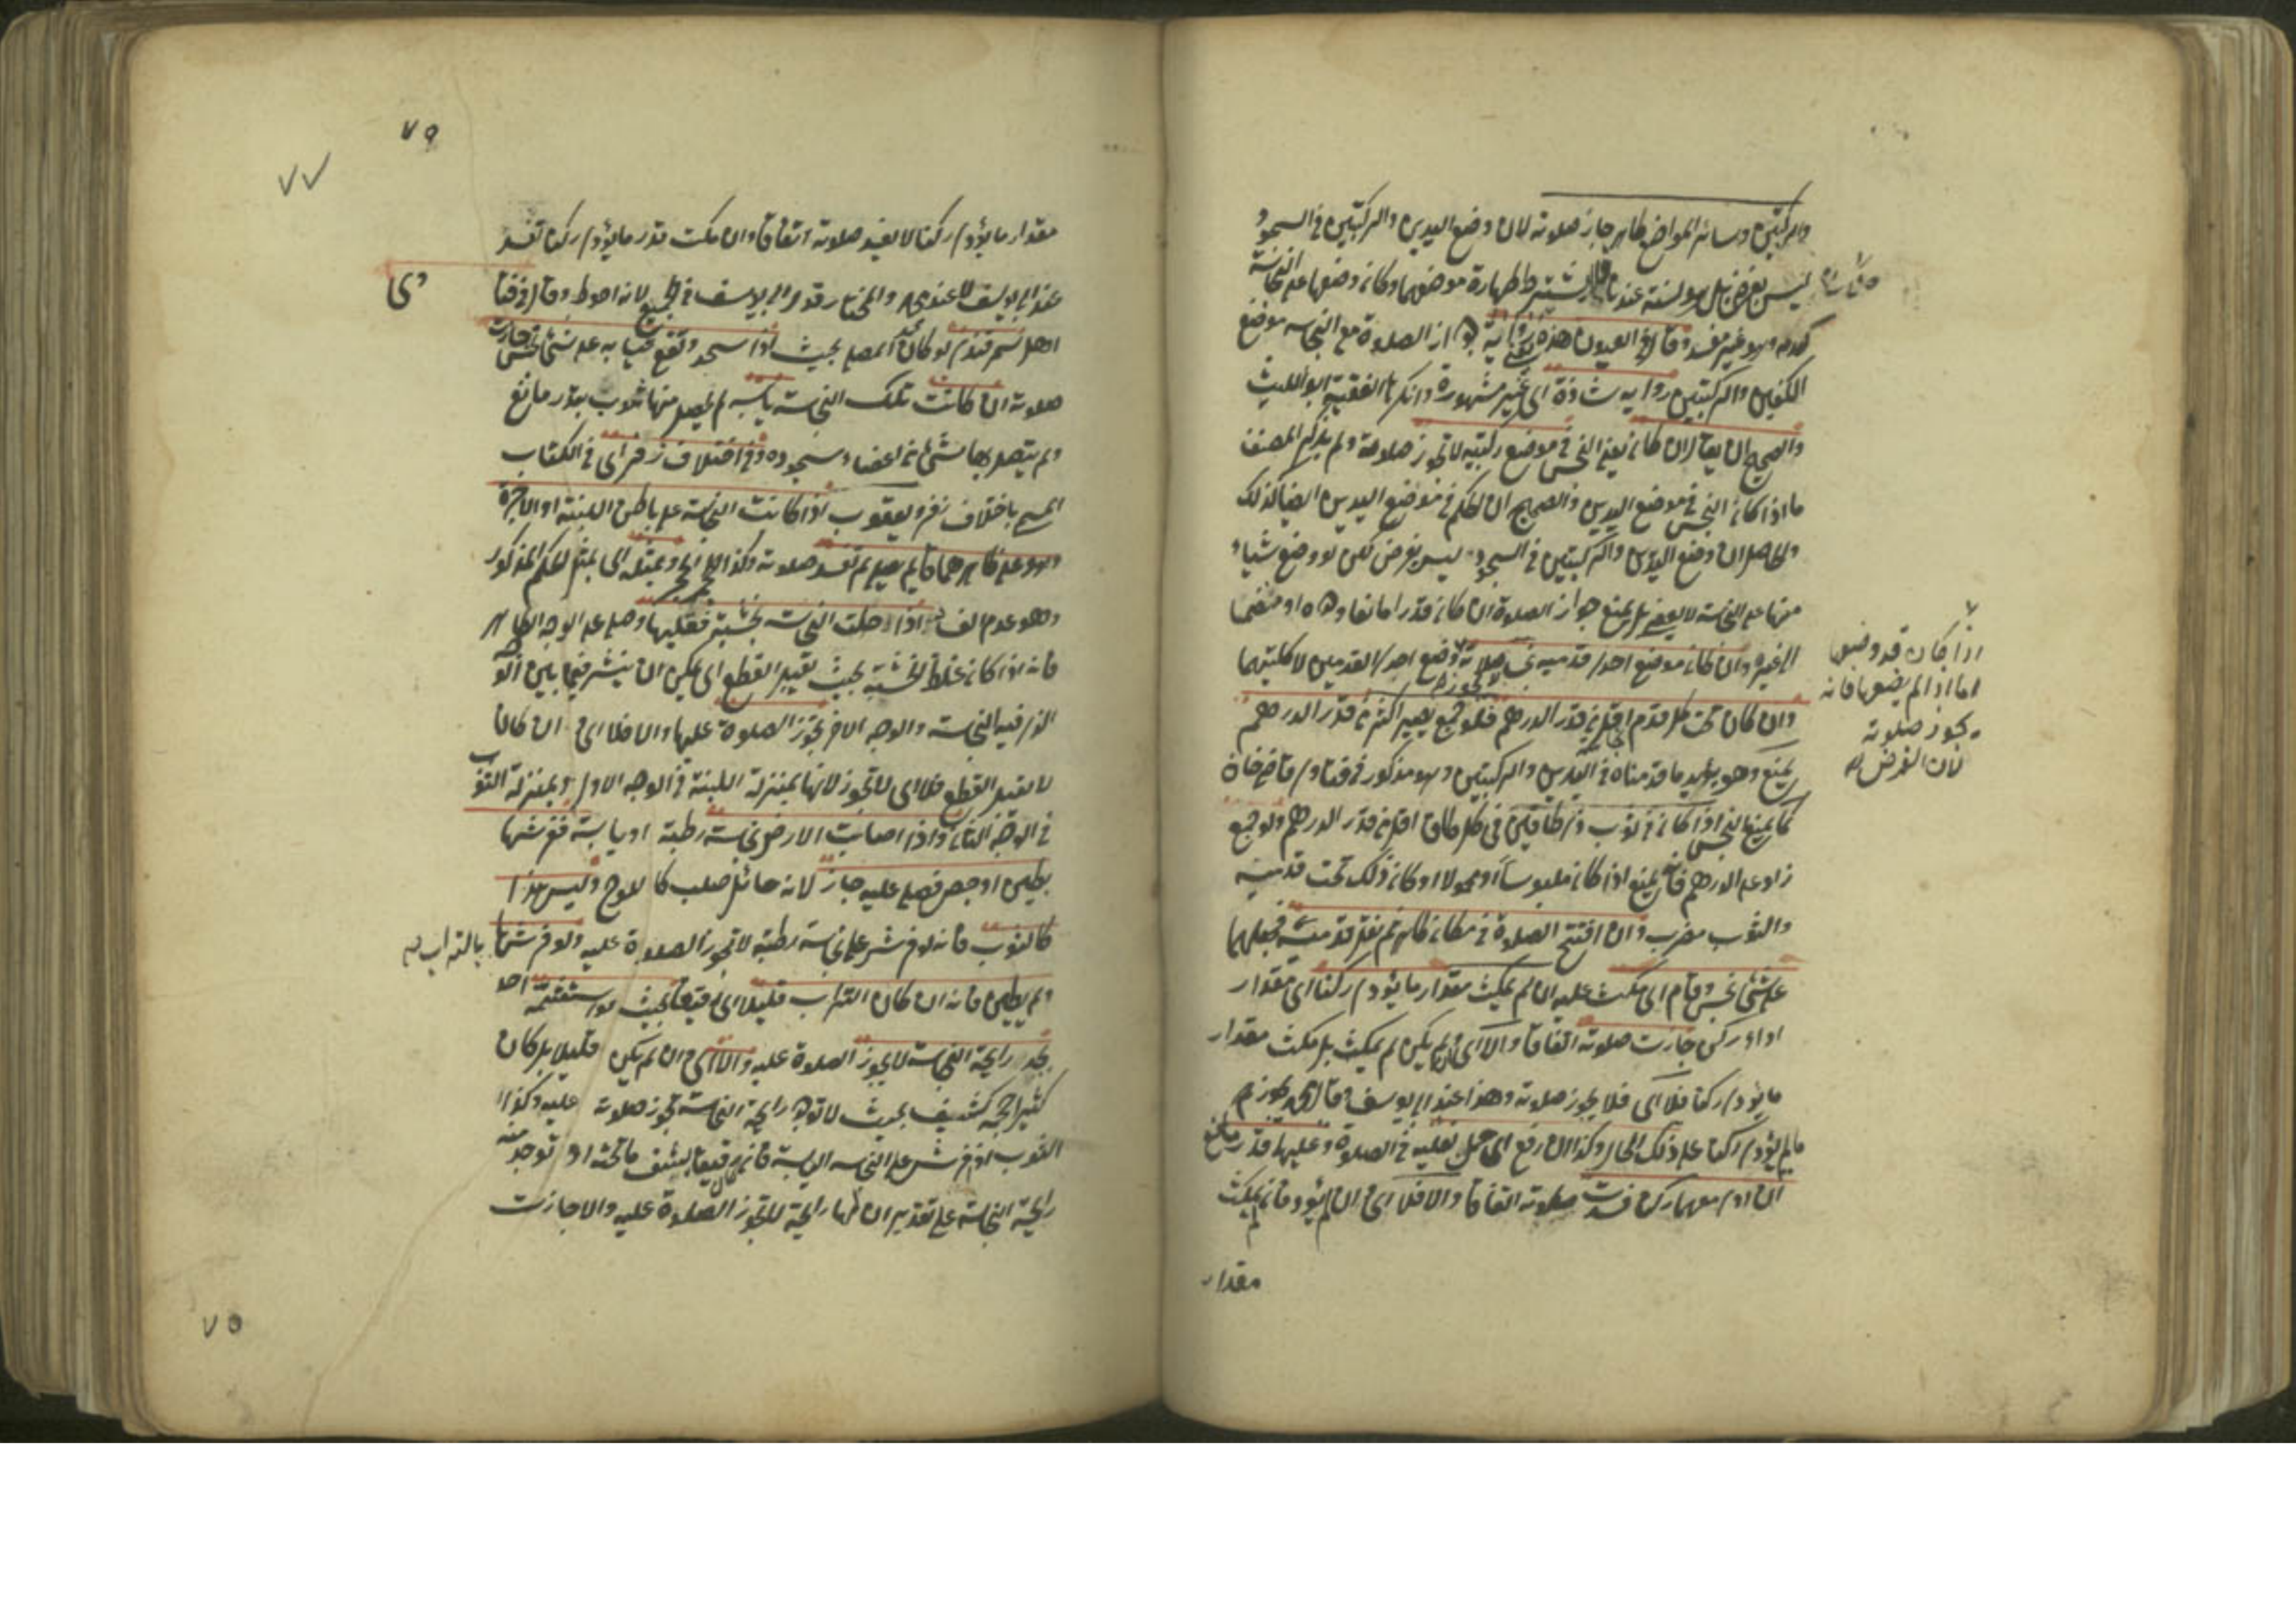 والركبتين وسائر المواضع طاهر جاز صلوته لان وضع اليدين والركبتين فى السجود
ليس بفرض بل هو لسنة عندنا فلا يشترط طهارة موضعهما وكان وضعها على النجاسة
كعدمه وهو غير مفسد وقال فى العيون هذه رواية يعنى جواز الصلوة مع النجاسه موضع
الكفين والركبتين رواية شاذة اى غير مشهورة وانكرها الفقيه ابو الليث
والصحيح ان يقال ان كان يعنى النجس فى موضع ركبتيه لا تجوز صلوته ولم يذكر المصنف
ما اذا كان النجس فى موضع اليدين والصحيح ان الحكم فى موضع اليدين ايضا كذلك
والحاصل ان وضع اليدين والركبتين فى السجود ليس بفرض لكن لو وضع شياء
منها على النجاسة يمنع جواز الصلوة ان كان قدرا مانعا وحده او منضما
الى غيره وان كان موضع احدى قدميه نجسا صلاته وضع احدى القدمين لا كلتيهما
لا يجوز
وان كان تحت كل قدم اقل من قدر الدرهم فلو جمع يصير اكثر من قدر الدرهم
يمنع وهو يؤيد ما قدمناه فى اليدين والركبتين وهو مذكور فى فتاوى قاضيخان
كما يمنع النجس اذا كان فى ثوب ذى طاقين فى كل طاق اقل من قدر الدرهم ولو جمع
زاد على الدرهم فانه يمنع اذا كان ملبوسا او محمولا او كان ذلك تحت قدميه
والثوب مضرب وان افتتح الصلوة فى مكان طاهر ثم نقل قدميه فجعلهما
على شئ نجس وقام اى مكث عليه ان لم يمكث مقدار ما يؤدى ركنا اى مقدار
اداء ركن جازت صلوته اتفاقا والا اى وان لم يكن لم يمكث بل مكث مقدار
ما يؤدى ركنا فلا اى فلا يجوز صلوته وهذا عند ابى يوسف وقال محمد يجوز
ما لم يؤد ركنا على ذلك الحال وكذا ان رفع اى حمل نعليه فى الصلوة وعليهما قدر مانع
ان ادى معهما ركنا فسدت صلوته اتفاقا والا فلا اى ان لم يؤد فان لم يمكث
مقدار
اذا كان قد وضعها
اما اذا لم يضعها فانه
يجوز صلوته
لان الفرض
٧٥
٧٧
مقدار ما يؤدى ركنا لا يفسد صلوته اتفاقا وان مكث قدر ما يؤدى ركنا تفسد
عند ابى يوسف لا عند محمد والمختار قول ابى يوسف فى الجميع لانه احوط وقال فى فتا
وى
اهل سمرقند لو كان المصلى بحيث اذا سجد وتقع ثيابه على شئ نجس جازت
صلوته ان كانت تلك النجاسة يابسه لم يحصل منها ثوب بقدر مانع
ولم يتصل بها شئ من اعضاء سجوده وفى اختلاف زفر اى فى الكتاب
المسمى باختلاف زفر ويعقوب اذا كانت النجاسة على باطن اللبنة او الاجرة
وهو على ظاهرهما قائم يصلى لم تفسد صلوته وكذا الحجر وبمثله اى بمثل الحكم المذكور
وهو عدم الفساد اذا حلت النجاسة بخشبة فقلبها وصلى على الوجه الطاهر
فانه اذا كان غلظ الخشبة بحيث تقبل القطع اى يمكن ان ينشر فيما بين الوجه
الذى فيه النجاسة والوجه الاخر تجوز الصلوة عليها والا فلا اى ان كان
لا تقبل القطع فلا اى لا تجوز لانها بمنزلة اللبنة فى الوجه الاول وبمنزلة الثوب
فى الوجه الثانى واذا اصابت الارض نجاسة رطبة او يابسة ففرشها
بطين او جص فصلى عليه جاز لانه حائل صلب كاللوح وليس هذا
كالثوب فانه لو فرش على نجاسة رطبة لا تجوز الصلوة عليه ولو فرشها بالتراب
ولم يطين فانه ان كان التراب قليلا اى رقيقا بحيث لو استشمه احد
يجد رايحة النجاسة لا يجوز الصلوة عليه والا اى وان لم يكن قليلا بل كان
كثيرا حجمه كثيف بحيث لا توجد رايحة النجاسة تجوز صلوته عليه وكذا
الثوب اذا فرش على النجاسه اليابسة فان كان رقيقا يشف ما تحته او توجد منه
رايحة النجاسة على تقدير ان لها رايحة لا تجوز الصلوة عليه والا جازت
٧٥